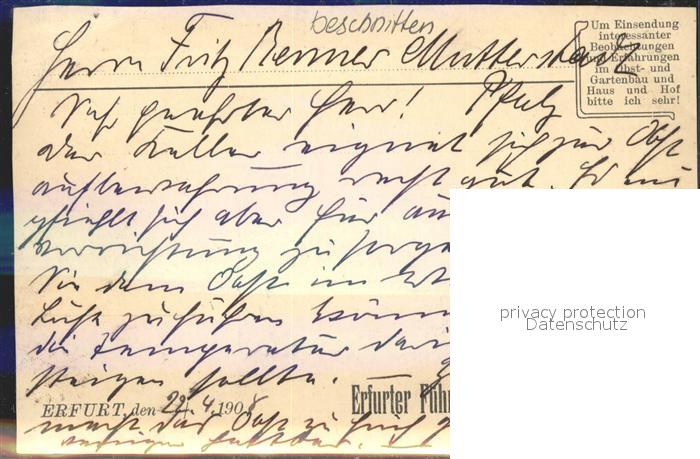 beschnitten
Herrn Fritz Renner Mutterstadt
Pfalz
Um Einsendung
interessanter
Beobachtungen
und Erfahrungen
im Obst- und
Gartenbau und
Haus und Hof
bitte ich sehr!
Sehr geehrter Herr!
Der Keller eignet sich zur Obst
aufbewahrung recht gut. Es em
pfiehlt sich aber für
vorrichtung zu sorge
Sie dem Obst im
Luft zuführen können
die Temperatur
steigen sollte. —
ERFURT, den 29. 4. 1908
Erfurter Füh
macht das Obst zu früh
weniger haltbar.
privacy protection
Datenschutz